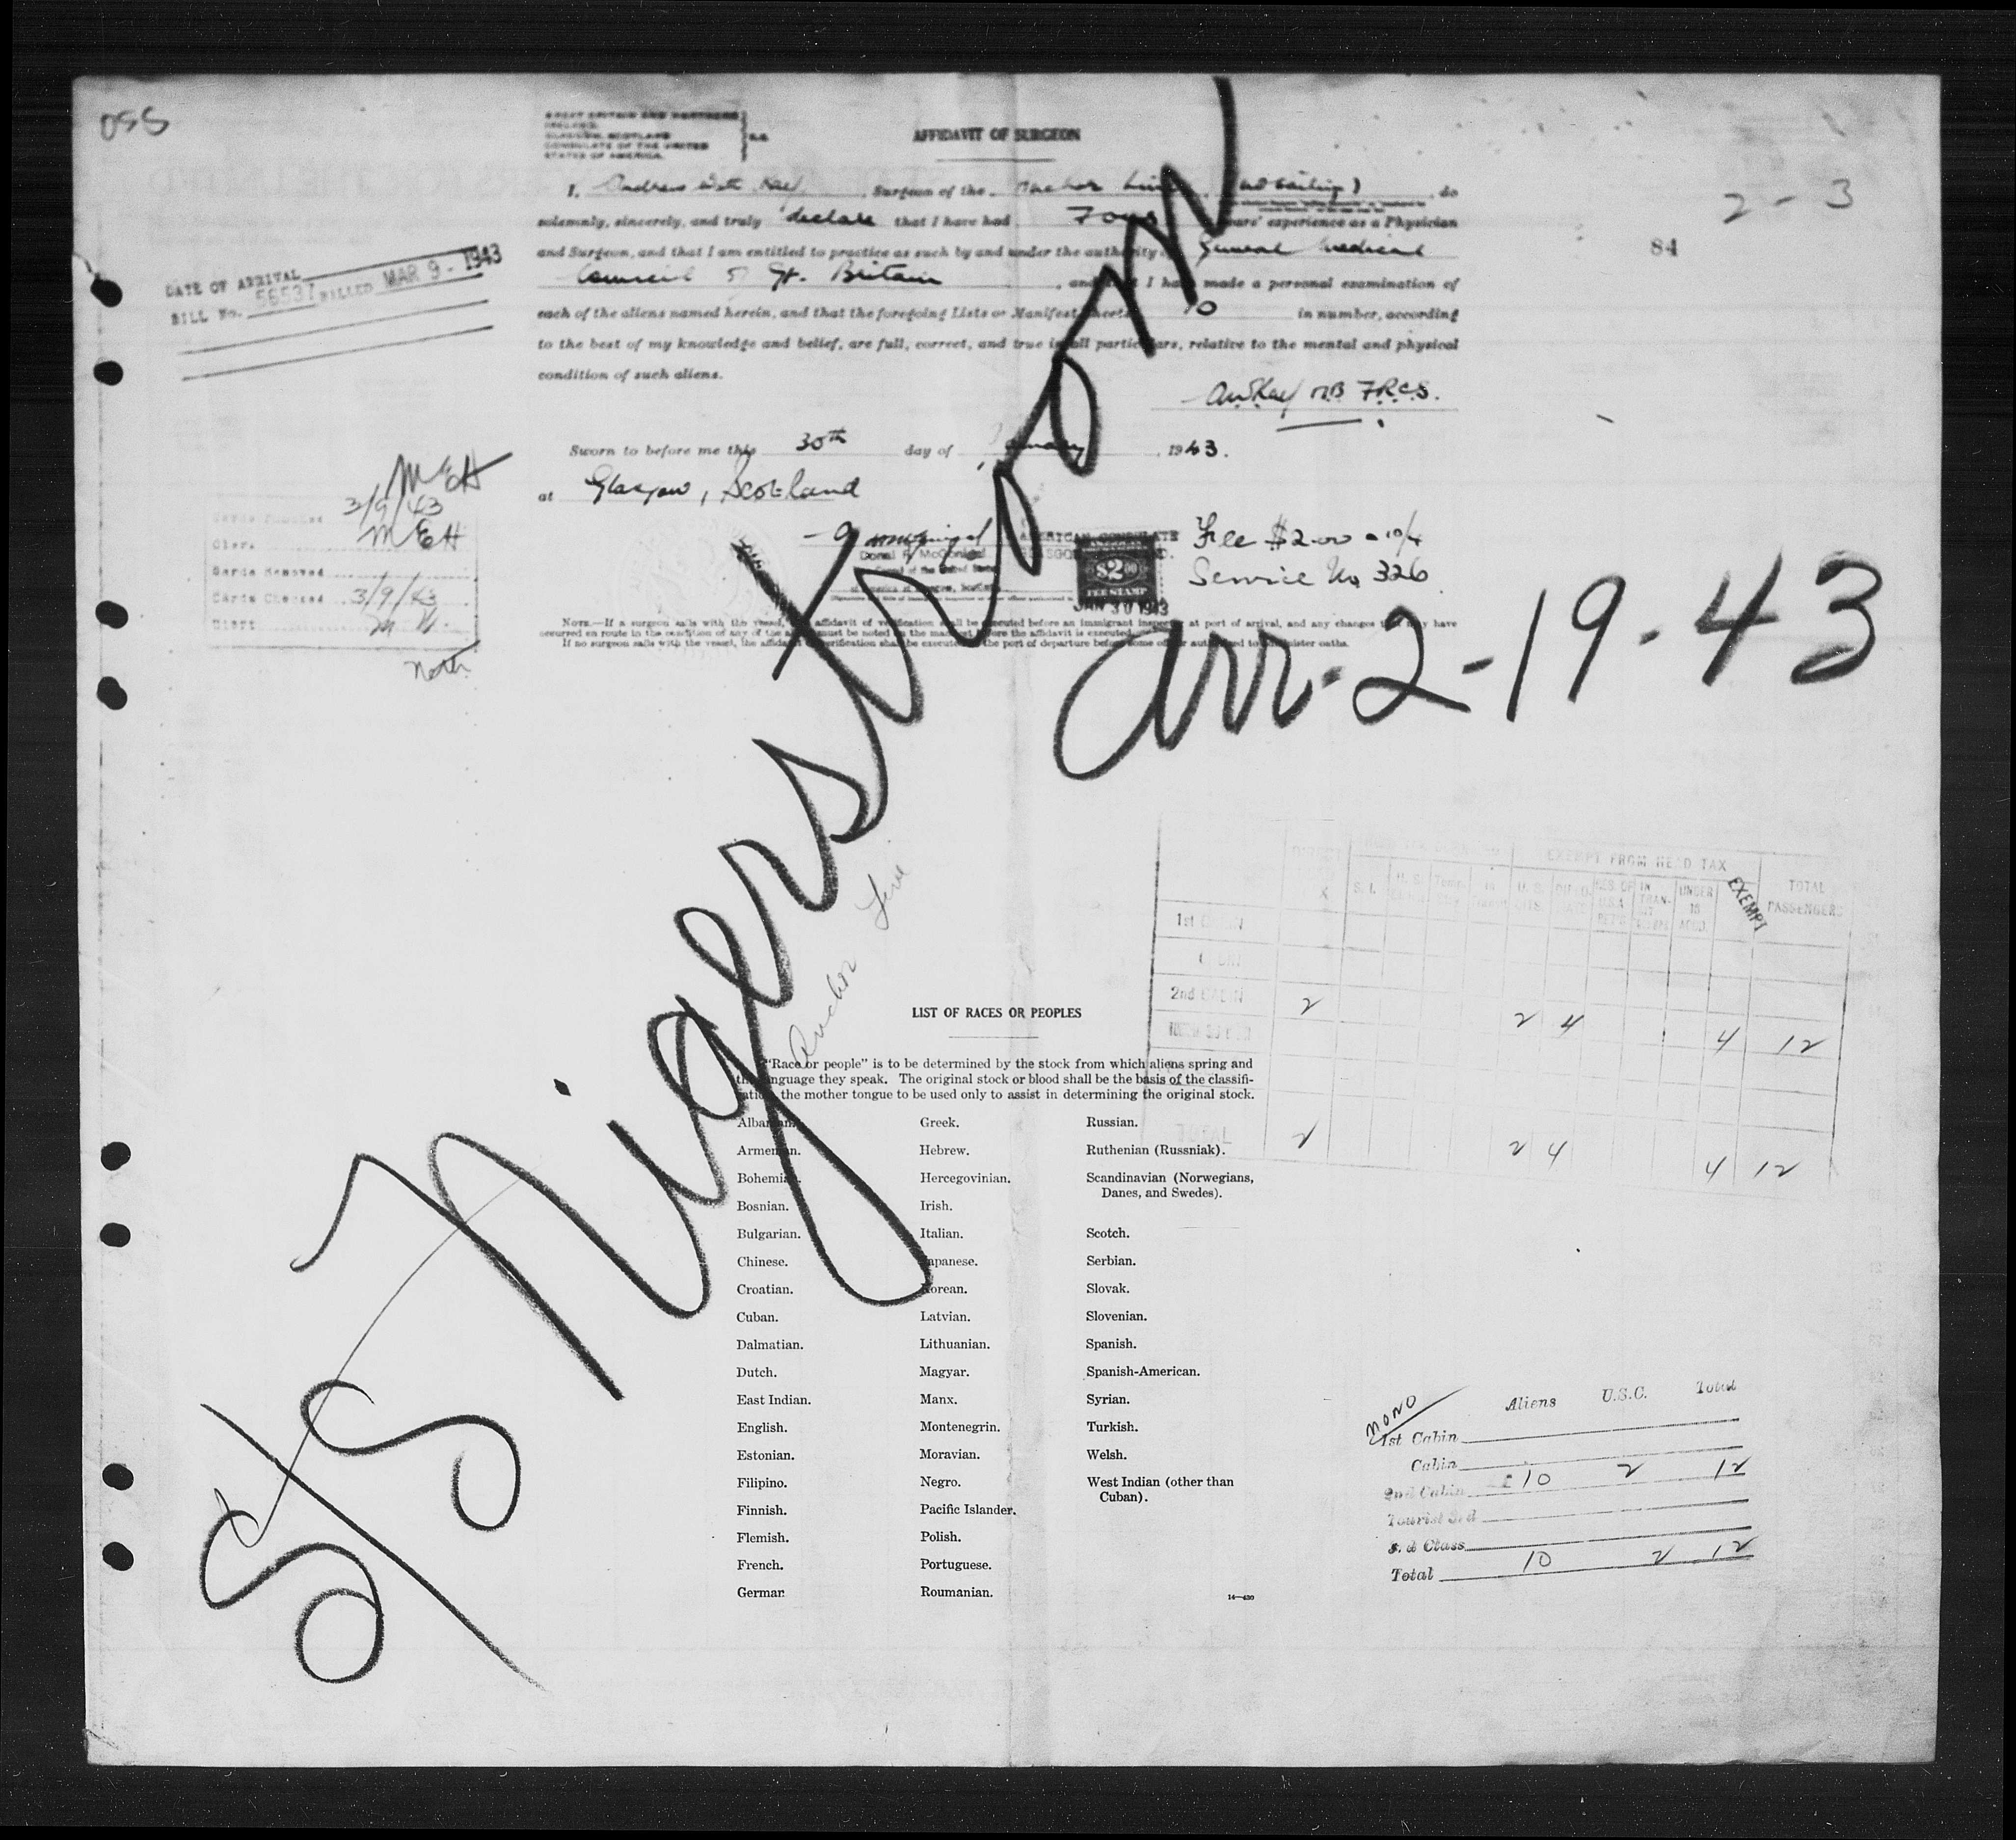 OSS
GREAT BRITAIN AND NORTHERN
IRELAND.
GLASGOW, SCOTLAND
CONSULATE OF THE UNITED
STATES OF AMERICA.
S.S.
AFFIDAVIT OF SURGEON
2 - 3
84
I, Andrew Watt Kay, Surgeon of the Anchor Line (not sailing) do
solemnly, sincerely, and truly declare that I have had Four years' experience as a Physician
and Surgeon, and that I am entitled to practice as such by and under the authority of General Medical
Council of Gt. Britain, and that I have made a personal examination of
each of the aliens named herein, and that the foregoing Lists or Manifest Sheets 10 in number, according
to the best of my knowledge and belief, are full, correct, and true in all particulars, relative to the mental and physical
condition of such aliens.
AWKay MB FRCS.
Sworn to before me this 30th day of January, 1943.
at Glasgow, Scotland
DATE OF ARRIVAL
BILL No. 56537 BILLED MAR 9 - 1943
MEH
3/9/43
Cards Punched
Clerk MEH
Cards Removed
Cards Checked 3/9/43
Diary
AMERICAN CONSULATE
Donal F. McGonigal
Consul of the United States
of America at Glasgow, Scotland
$2.00
FEE STAMP
JAN 30 1943
Fee $2.00 = 10/4
Service No 326
NOTE.—If a surgeon sails with the vessel, the affidavit of verification shall be executed before an immigrant inspector at port of arrival, and any changes that may have
occurred en route in the condition of any of the aliens must be noted on the manifest before the affidavit is executed.
If no surgeon sails with the vessel, the affidavit of verification shall be executed at the port of departure before some officer authorized to administer oaths.
S/S Nigerstroom
arr. 2-19-43
Anchor Line
EXEMPT FROM HEAD TAX
DIRECT S.I. U.S. U.S. CITS. IN TRAN- UNDER 16 EXEMPT TOTAL PASSENGERS
1st CABIN
CABIN
2nd CABIN 2 2 4 4 12
TOTAL 2 2 4 4 12
LIST OF RACES OR PEOPLES
"Race or people" is to be determined by the stock from which aliens spring and
the language they speak. The original stock or blood shall be the basis of the classifi-
cation, the mother tongue to be used only to assist in determining the original stock.
Albanian.
Armenian.
Bohemian.
Bosnian.
Bulgarian.
Chinese.
Croatian.
Cuban.
Dalmatian.
Dutch.
East Indian.
English.
Estonian.
Filipino.
Finnish.
Flemish.
French.
German
Greek.
Hebrew.
Hercegovinian.
Irish.
Italian.
Japanese.
Korean.
Latvian.
Lithuanian.
Magyar.
Manx.
Montenegrin.
Moravian.
Negro.
Pacific Islander.
Polish.
Portuguese.
Roumanian.
Russian.
Ruthenian (Russniak).
Scandinavian (Norwegians,
Danes, and Swedes).
Scotch.
Serbian.
Slovak.
Slovenian.
Spanish.
Spanish-American.
Syrian.
Turkish.
Welsh.
West Indian (other than
Cuban).
14—430
MONO
Aliens U.S.C. Total
1st Cabin
Cabin
2nd Cabin 10 2 12
Tourist 3rd
3rd Class
Total 10 2 12